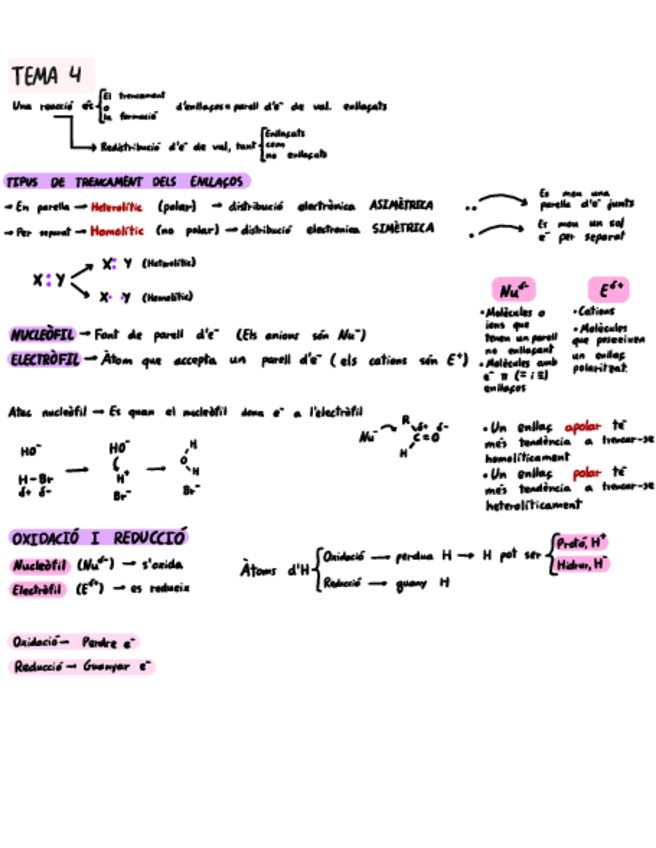 TEMA 4
Una reacció és
El trencament
o
la formació
d'enllaços = parell d'e⁻ de val. enllaçats
Redistribució d'e⁻ de val, tant
Enllaçats
com
no enllaçats
TIPUS DE TRENCAMENT DELS ENLLAÇOS
→ En parella → Heterolític (polar) → distribució electrònica ASIMÈTRICA
Es mou una
parella d'e⁻ junts
→ Per separat → Homolític (no polar) → distribució electronica SIMÈTRICA
Es mou un sol
e⁻ per separat
X:Y
X: Y (Heterolític)
X· ·Y (Homolític)
NUCLEÒFIL → Font de parell d'e⁻ (Els anions són Nu⁻)
ELECTRÒFIL → Àtom que accepta un parell d'e⁻ (els cations són E⁺)
Nu^δ-
• Molècules o
ions que
tenen un parell
no enllaçant
• Molècules amb
e⁻ π (= i ≡)
enllaços
E^δ+
• Cations
• Molècules
que posseeixen
un enllaç
polaritzat.
Atac nucleòfil → Es quan el nucleòfil dona e⁻ a l'electròfil
HO⁻
H-Br
δ+ δ-
HO⁻
H⁺
Br⁻
H
O
H
Br⁻
Nu⁻
R
δ+ δ-
C=O
H
• Un enllaç apolar té
més tendència a trencar-se
homolíticament
• Un enllaç polar té
més tendència a trencar-se
heterolíticament
OXIDACIÓ I REDUCCIÓ
Nucleòfil (Nu^δ-) → s'oxida
Electròfil (E^δ+) → es redueix
Àtoms d'H
Oxidació → perdua H → H pot ser
Protó, H⁺
Hidrur, H⁻
Reducció → guany H
Oxidació → Perdre e⁻
Reducció → Guanyar e⁻